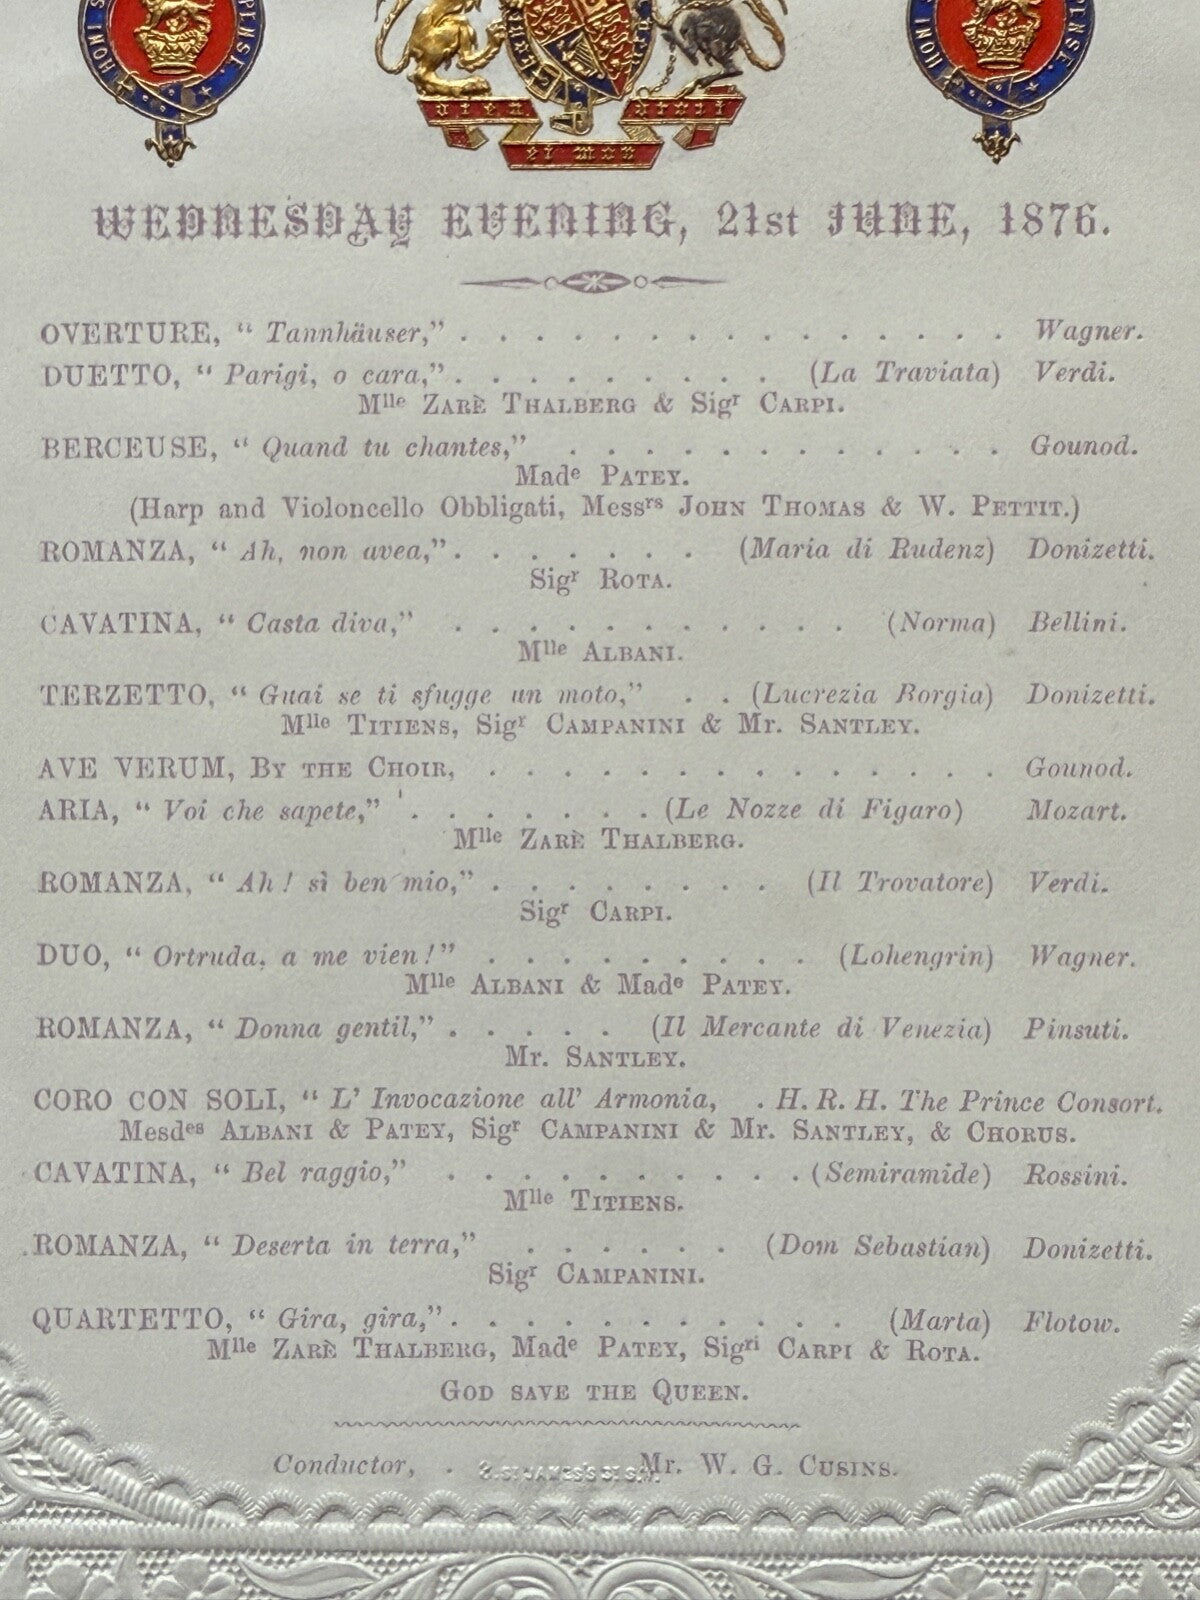 HONI S PENSE. HONI S PENSE.
DIEU ET MON DROIT
WEDNESDAY EVENING, 21st JUNE, 1876.
OVERTURE, “ Tannhäuser,” . . . . . . . . . . . . . . . Wagner.
DUETTO, “ Parigi, o cara,” . . . . . . . . . (La Traviata) Verdi.
Mlle ZARÈ THALBERG & Sigr CARPI.
BERCEUSE, “ Quand tu chantes,” . . . . . . . . . . . . Gounod.
Made PATEY.
(Harp and Violoncello Obbligati, Messrs JOHN THOMAS & W. PETTIT.)
ROMANZA, “ Ah, non avea,” . . . . . . . (Maria di Rudenz) Donizetti.
Sigr ROTA.
CAVATINA, “ Casta diva,” . . . . . . . . . . . (Norma) Bellini.
Mlle ALBANI.
TERZETTO, “ Guai se ti sfugge un moto,” . . (Lucrezia Borgia) Donizetti.
Mlle TITIENS, Sigr CAMPANINI & Mr. SANTLEY.
AVE VERUM, BY THE CHOIR, . . . . . . . . . . . . . . Gounod.
ARIA, “ Voi che sapete,” . . . . . . . (Le Nozze di Figaro) Mozart.
Mlle ZARÈ THALBERG.
ROMANZA, “ Ah ! sì ben mio,” . . . . . . . . (Il Trovatore) Verdi.
Sigr CARPI.
DUO, “ Ortruda, a me vien !” . . . . . . . . . (Lohengrin) Wagner.
Mlle ALBANI & Made PATEY.
ROMANZA, “ Donna gentil,” . . . . . (Il Mercante di Venezia) Pinsuti.
Mr. SANTLEY.
CORO CON SOLI, “ L’ Invocazione all’ Armonia, . H. R. H. The Prince Consort.
Mesdes ALBANI & PATEY, Sigr CAMPANINI & Mr. SANTLEY, & CHORUS.
CAVATINA, “ Bel raggio,” . . . . . . . . . . (Semiramide) Rossini.
Mlle TITIENS.
ROMANZA, “ Deserta in terra,” . . . . . . (Dom Sebastian) Donizetti.
Sigr CAMPANINI.
QUARTETTO, “ Gira, gira,” . . . . . . . . . . . (Marta) Flotow.
Mlle ZARÈ THALBERG, Made PATEY, Sigri CARPI & ROTA.
GOD SAVE THE QUEEN.
Conductor, . Mr. W. G. CUSINS.